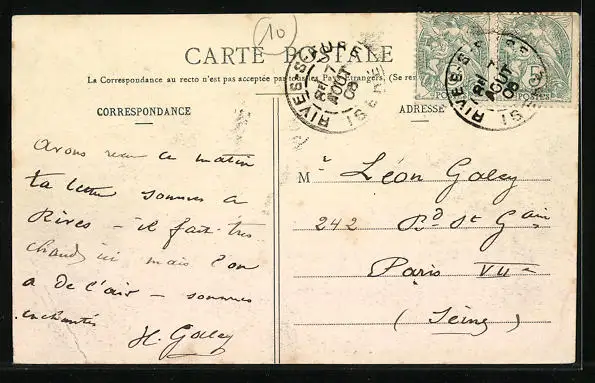 10
CARTE POSTALE
La Correspondance au recto n'est pas acceptée par tous les Pays Étrangers. (Se ren
CORRESPONDANCE
ADRESSE
RIVES-S-FURE
7
AOUT
08
ISERE
RIVES-S-
7
AOUT
08
ISE
5
POSTES
Avons reçu ce matin
ta lettre sommes à
Rives - il fait très
chaud ici mais l'on
a de l'air - sommes
enchantés
H. Galey
Mr Léon Galey
242 Bd St Gain
Paris VIIe
(Seine)